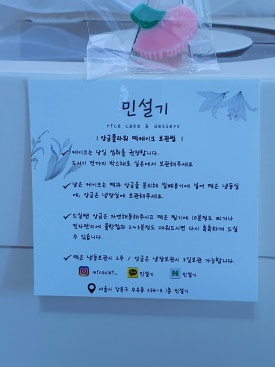 민설기
rice cake & dessert
| 앙금플라워 떡케이크 보관법 |
케이크는 당일 섭취를 권장합니다.
드시기 전까지 박스채로 실온에서 보관해주세요
남은 케이크는 떡과 앙금을 분리해 밀폐용기에 넣어 떡은 냉동실
에, 앙금은 냉장실에 보관해주세요.
드실땐 앙금은 자연해동해주시고 떡은 찜기에 10분정도 찌거나
전자렌지에 물한컵과 2~3분정도 데워드시면 다시 촉촉하게 드실
수 있습니다.
떡은 냉동보관시 2주 / 앙금은 냉장보관시 3일보관 가능합니다.
민설기
민설기
서울시 강북구 수유동 254-6 1층 민설기